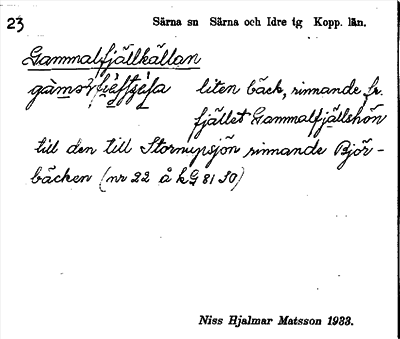 23
Särna sn Särna och Idre tg Kopp. län.
Gammalfjällkällan
liten bäck, rinnande fr.
fjället Gammalfjällshön
till den till Stornupsjön rinnande Björ-
bäcken (nr 22 å kG 81 SO)
Niss Hjalmar Matsson 1933.